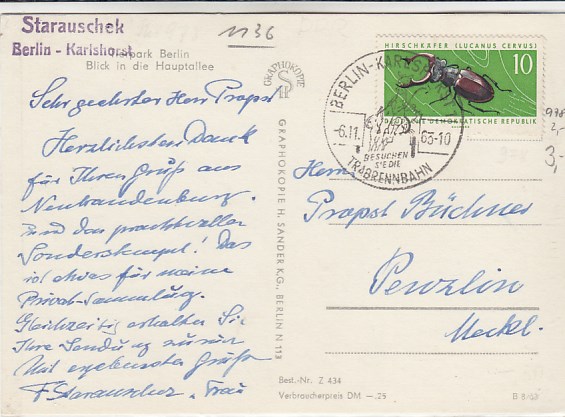 Starauschek
Berlin - Karlshorst
1136
Tierpark Berlin
Blick in die Hauptallee
Sehr geehrter Herr Propst
Herzlichsten Dank
für Ihren Gruß aus
Neubrandenburg.
und das prachtvoller
Sonderstempel! Das
ist etwas für meine
Privat-Sammlung.
Gleichzeitig erhalten Sie
Ihre Sendung zurück
Mit ergebensten Grüßen
F. Starauschek, Frau
GRAPHOKOPIE
GRAPHOKOPIE H. SANDER K.G., BERLIN N 113
HIRSCHKÄFER (LUCANUS CERVUS)
10
DEUTSCHE DEMOKRATISCHE REPUBLIK
BERLIN-KARLSHORST
-6.11.
63-10
BESUCHEN
SIE DIE
TRABRENNBAHN
978
2,-
3,-
Herrn
Propst Büchner
Penzlin
Meckl.
Best.-Nr. Z 434
Verbraucherpreis DM -.25
B 8/63